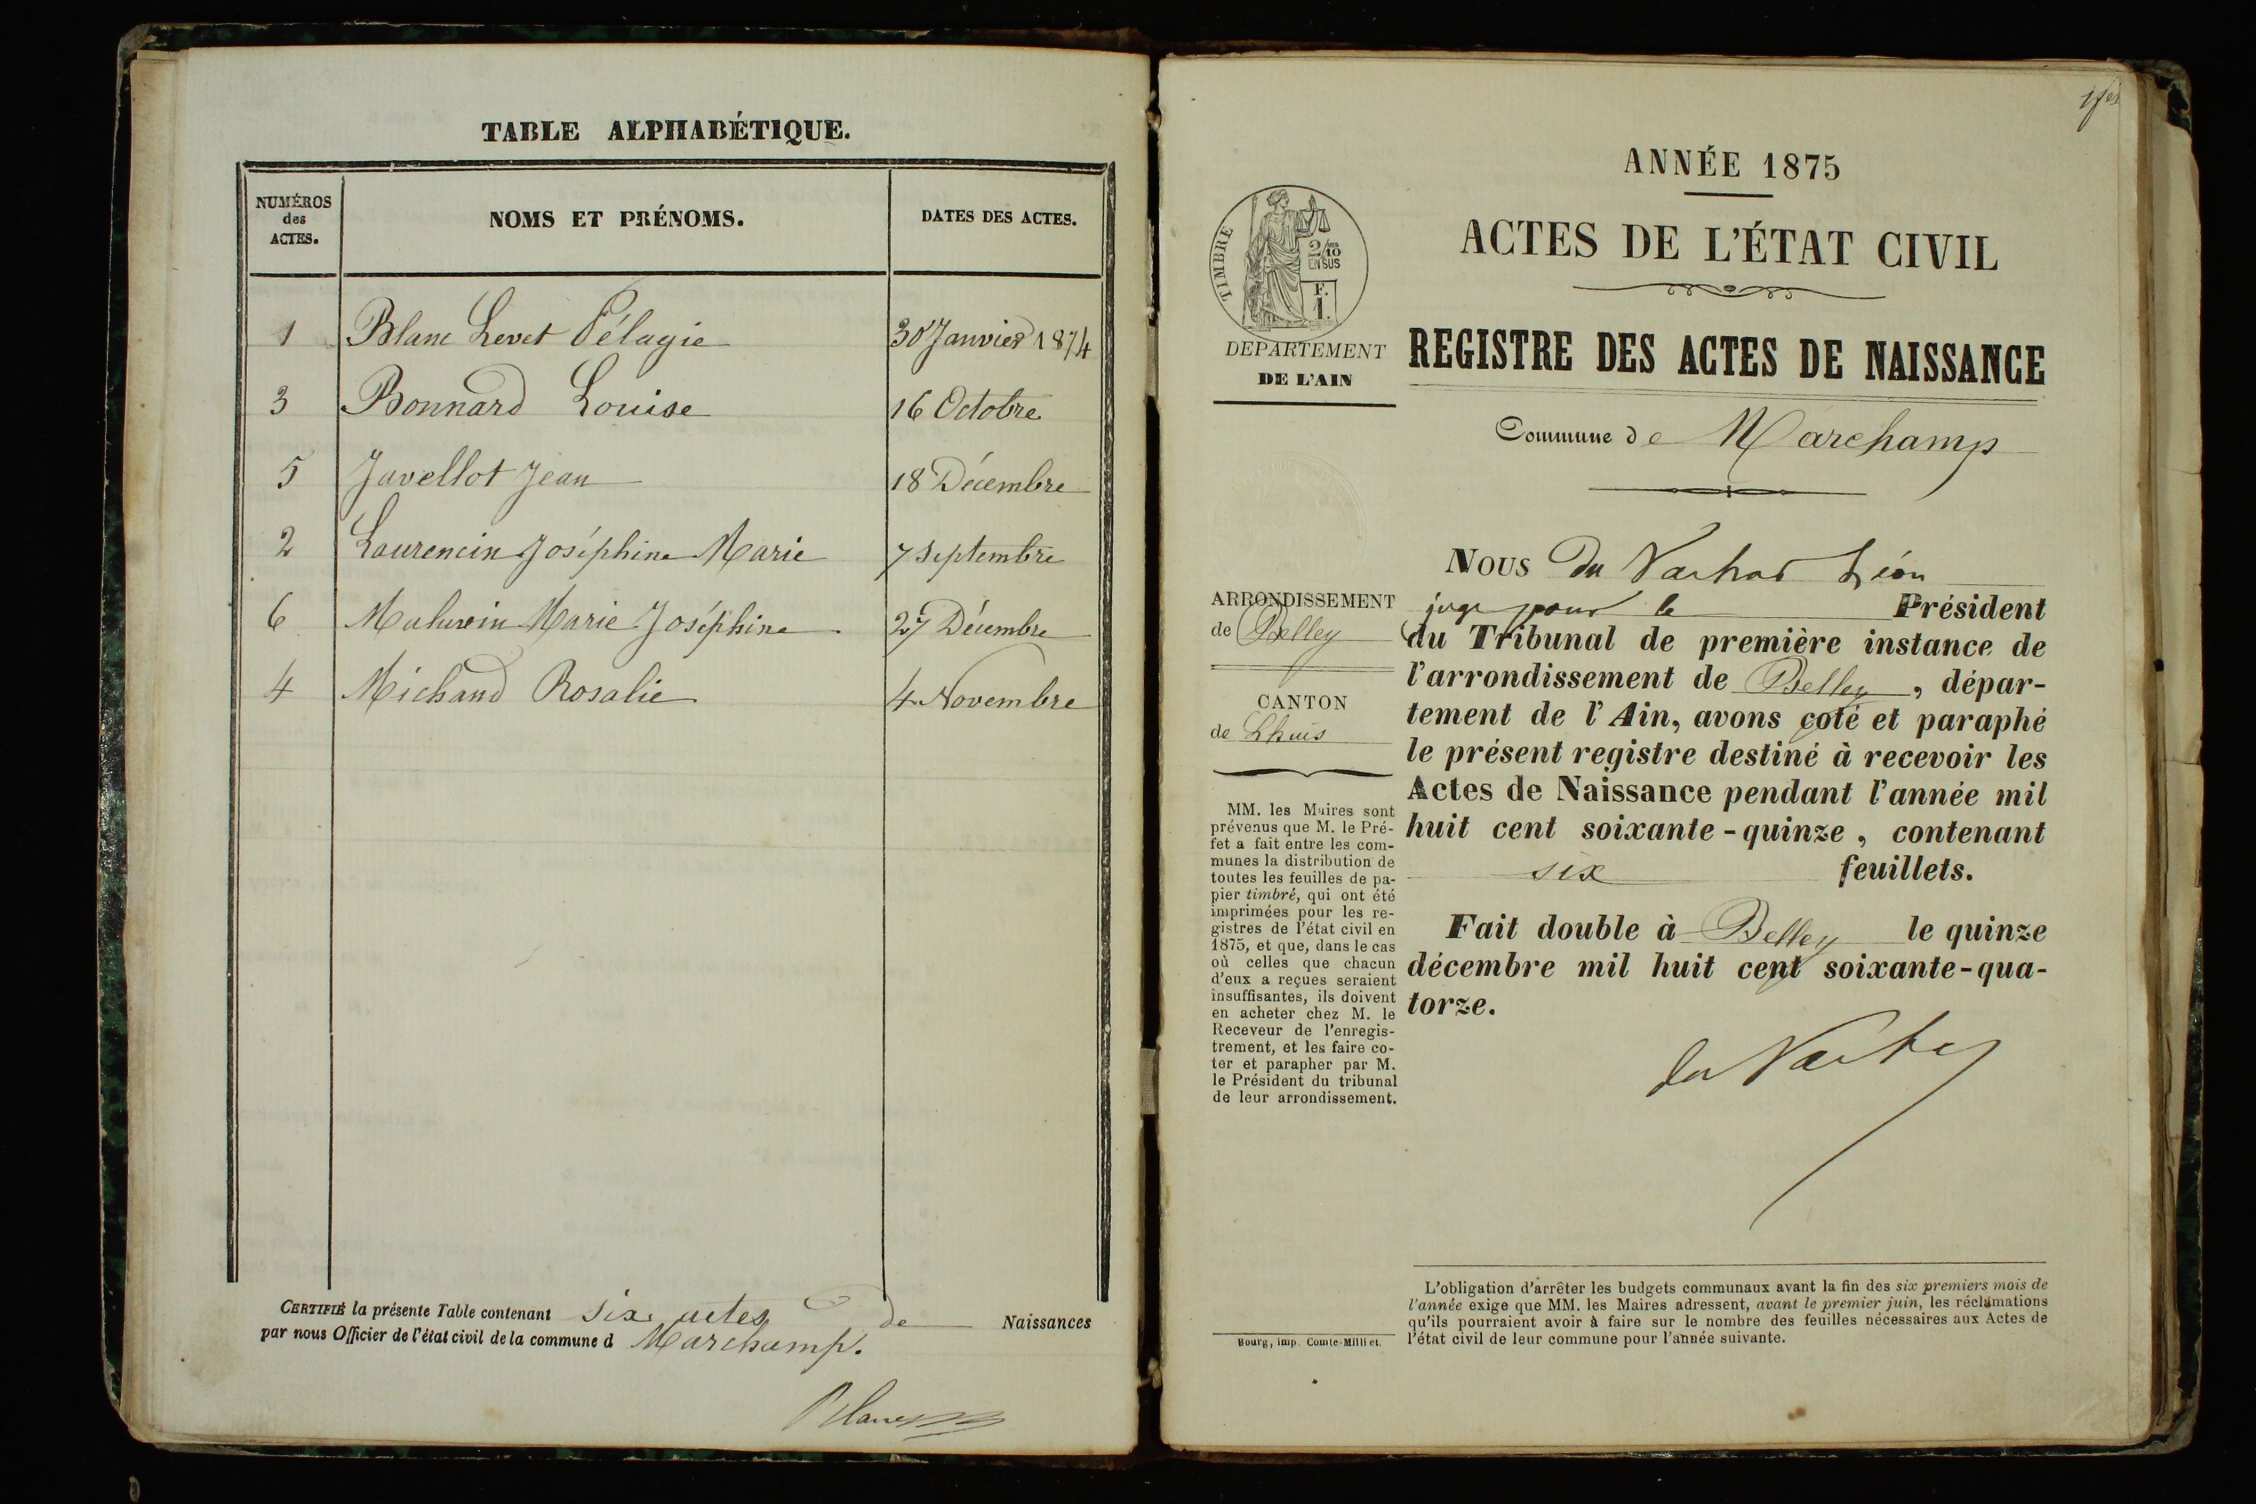 TABLE ALPHABÉTIQUE.
NUMÉROS
des
ACTES.
NOMS ET PRÉNOMS.
DATES DES ACTES.
1 Blanc Levet Pélagie 30 Janvier 1874
3 Bonnard Louise 16 Octobre
5 Javellot Jean 18 Décembre
2 Laurencin Joséphine Marie 7 Septembre
6 Marie Joséphine 27 Décembre
4 Michaud Rosalie 4 Novembre
CERTIFIÉ la présente Table contenant six actes de Naissances
par nous Officier de l'état civil de la commune d Marchamp.
Blanc
ANNÉE 1875
ACTES DE L'ÉTAT CIVIL
TIMBRE
2/10
EN SUS
F.
1.
DÉPARTEMENT
DE L'AIN
REGISTRE DES ACTES DE NAISSANCE
Commune de Marchamp
ARRONDISSEMENT
de Belley
CANTON
de Lhuis
MM. les Maires sont
prévenus que M. le Pré-
fet a fait entre les com-
munes la distribution de
toutes les feuilles de pa-
pier timbré, qui ont été
imprimées pour les re-
gistres de l'état civil en
1875, et que, dans le cas
où celles que chacun
d'eux a reçues seraient
insuffisantes, ils doivent
en acheter chez M. le
Receveur de l'enregis-
trement, et les faire co-
ter et parapher par M.
le Président du tribunal
de leur arrondissement.
Bourg, imp. Comte-Milliet.
NOUS du Léon
juge pour le Président
du Tribunal de première instance de
l'arrondissement de Belley, dépar-
tement de l'Ain, avons coté et paraphé
le présent registre destiné à recevoir les
Actes de Naissance pendant l'année mil
huit cent soixante-quinze, contenant
six feuillets.
Fait double à Belley le quinze
décembre mil huit cent soixante-qua-
torze.
L'obligation d'arrêter les budgets communaux avant la fin des six premiers mois de
l'année exige que MM. les Maires adressent, avant le premier juin, les réclamations
qu'ils pourraient avoir à faire sur le nombre des feuilles nécessaires aux Actes de
l'état civil de leur commune pour l'année suivante.